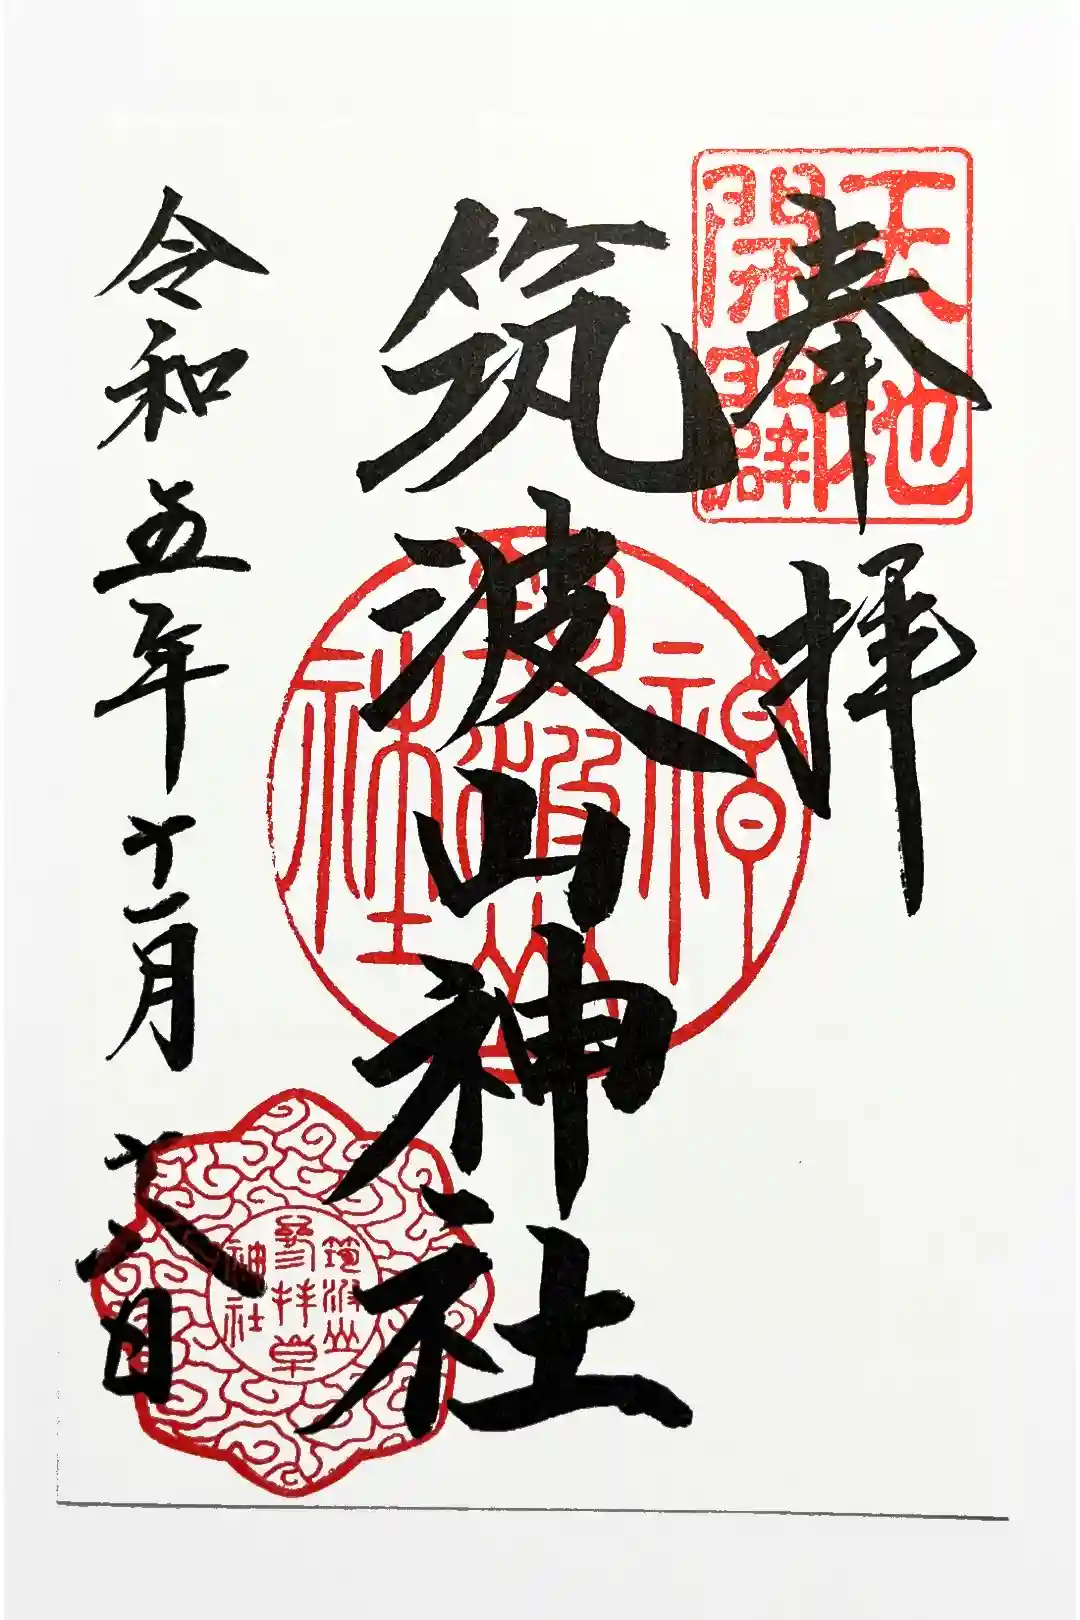 奉拝
天地
開闢
筑波山神社
神
筑波山
社
令和五年十一月十八日
筑波山
参拝章
神社